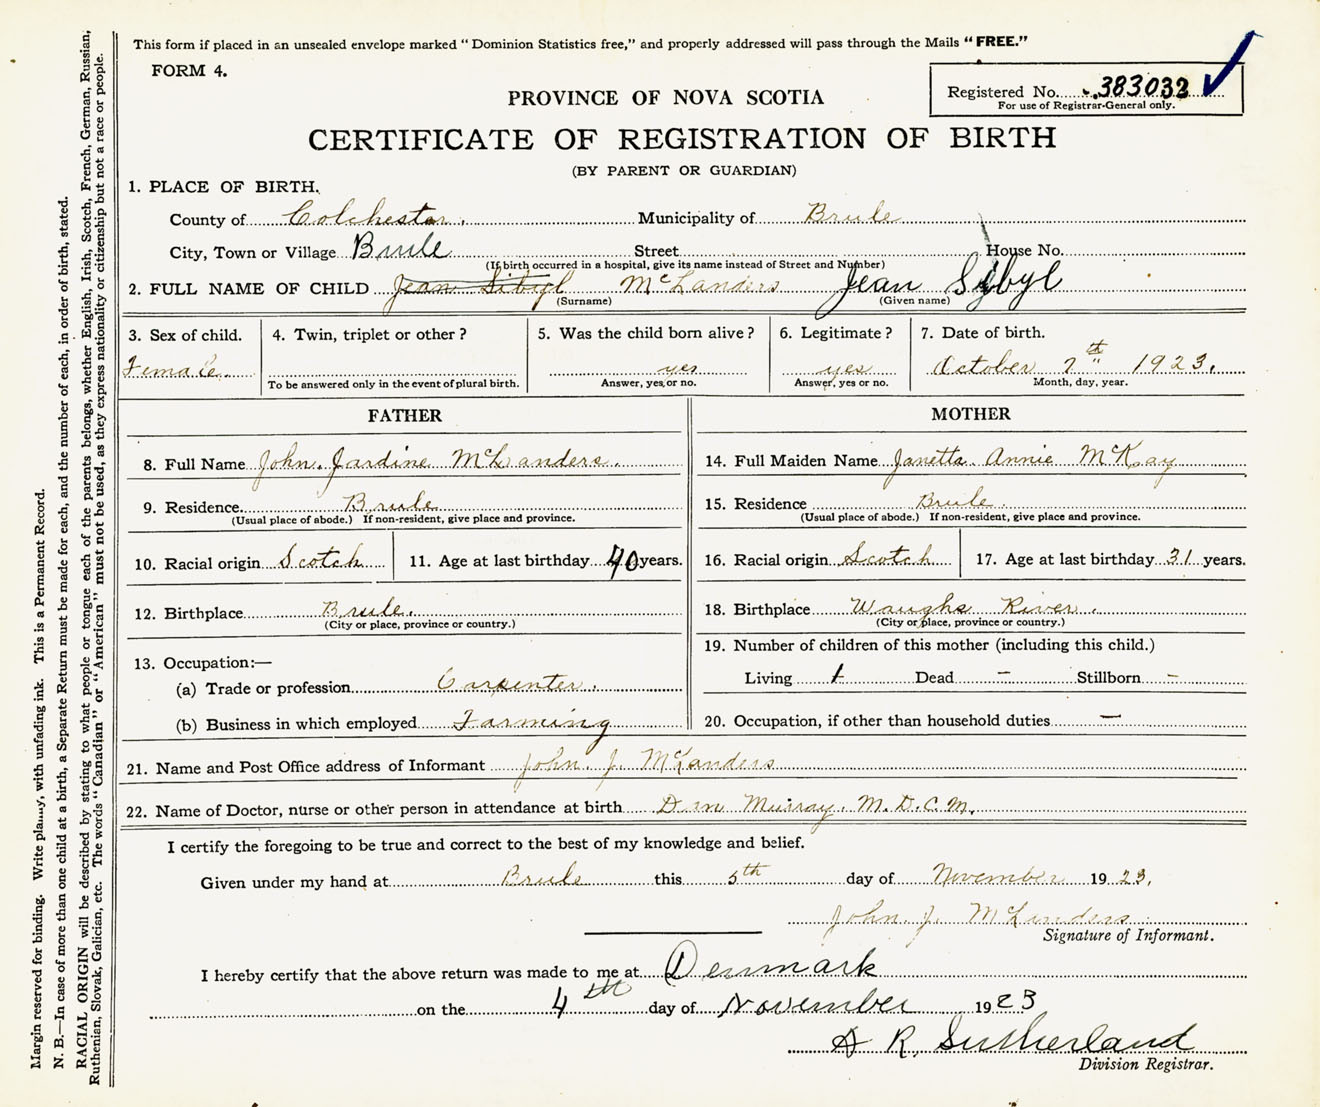 This form if placed in an unsealed envelope marked "Dominion Statistics free," and properly addressed will pass through the Mails "FREE."
FORM 4.
Registered No. 383032
For use of Registrar-General only.
PROVINCE OF NOVA SCOTIA
CERTIFICATE OF REGISTRATION OF BIRTH
(BY PARENT OR GUARDIAN)
1. PLACE OF BIRTH.
County of Colchester. Municipality of Brule
City, Town or Village Brule Street House No.
(If birth occurred in a hospital, give its name instead of Street and Number)
2. FULL NAME OF CHILD Jean Sibyl McLanders Jean Sybyl
(Surname) (Given name)
3. Sex of child. 4. Twin, triplet or other? 5. Was the child born alive? 6. Legitimate? 7. Date of birth.
Female. yes yes October 7th 1923.
To be answered only in the event of plural birth. Answer, yes or no. Answer, yes or no. Month, day, year.
FATHER
8. Full Name John Jardine McLanders.
9. Residence. Brule
(Usual place of abode.) If non-resident, give place and province.
10. Racial origin Scotch 11. Age at last birthday 40 years.
12. Birthplace Brule.
(City or place, province or country.)
13. Occupation:—
(a) Trade or profession Carpenter.
(b) Business in which employed Farming
MOTHER
14. Full Maiden Name Janetta Annie McKay
15. Residence Brule.
(Usual place of abode.) If non-resident, give place and province.
16. Racial origin Scotch 17. Age at last birthday 31 years.
18. Birthplace Waughs River.
(City or place, province or country.)
19. Number of children of this mother (including this child.)
Living 1 Dead – Stillborn –
20. Occupation, if other than household duties —
21. Name and Post Office address of Informant John J. McLanders
22. Name of Doctor, nurse or other person in attendance at birth Dan Murray. M.D.C.M.
I certify the foregoing to be true and correct to the best of my knowledge and belief.
Given under my hand at Brule this 5th day of November 1923.
John J. McLanders
Signature of Informant.
I hereby certify that the above return was made to me at Denmark
on the 4th day of November 1923
A R. Sutherland
Division Registrar.
Margin reserved for binding. Write plainly, with unfading ink. This is a Permanent Record.
N. B.—In case of more than one child at a birth, a Separate Return must be made for each, and the number of each, in order of birth, stated.
RACIAL ORIGIN will be described by stating to what people or tongue each of the parents belongs, whether English, Irish, Scotch, French, German, Russian,
Ruthenian, Slovak, Galician, etc. The words "Canadian" or "American" must not be used, as they express nationality or citizenship but not a race or people.